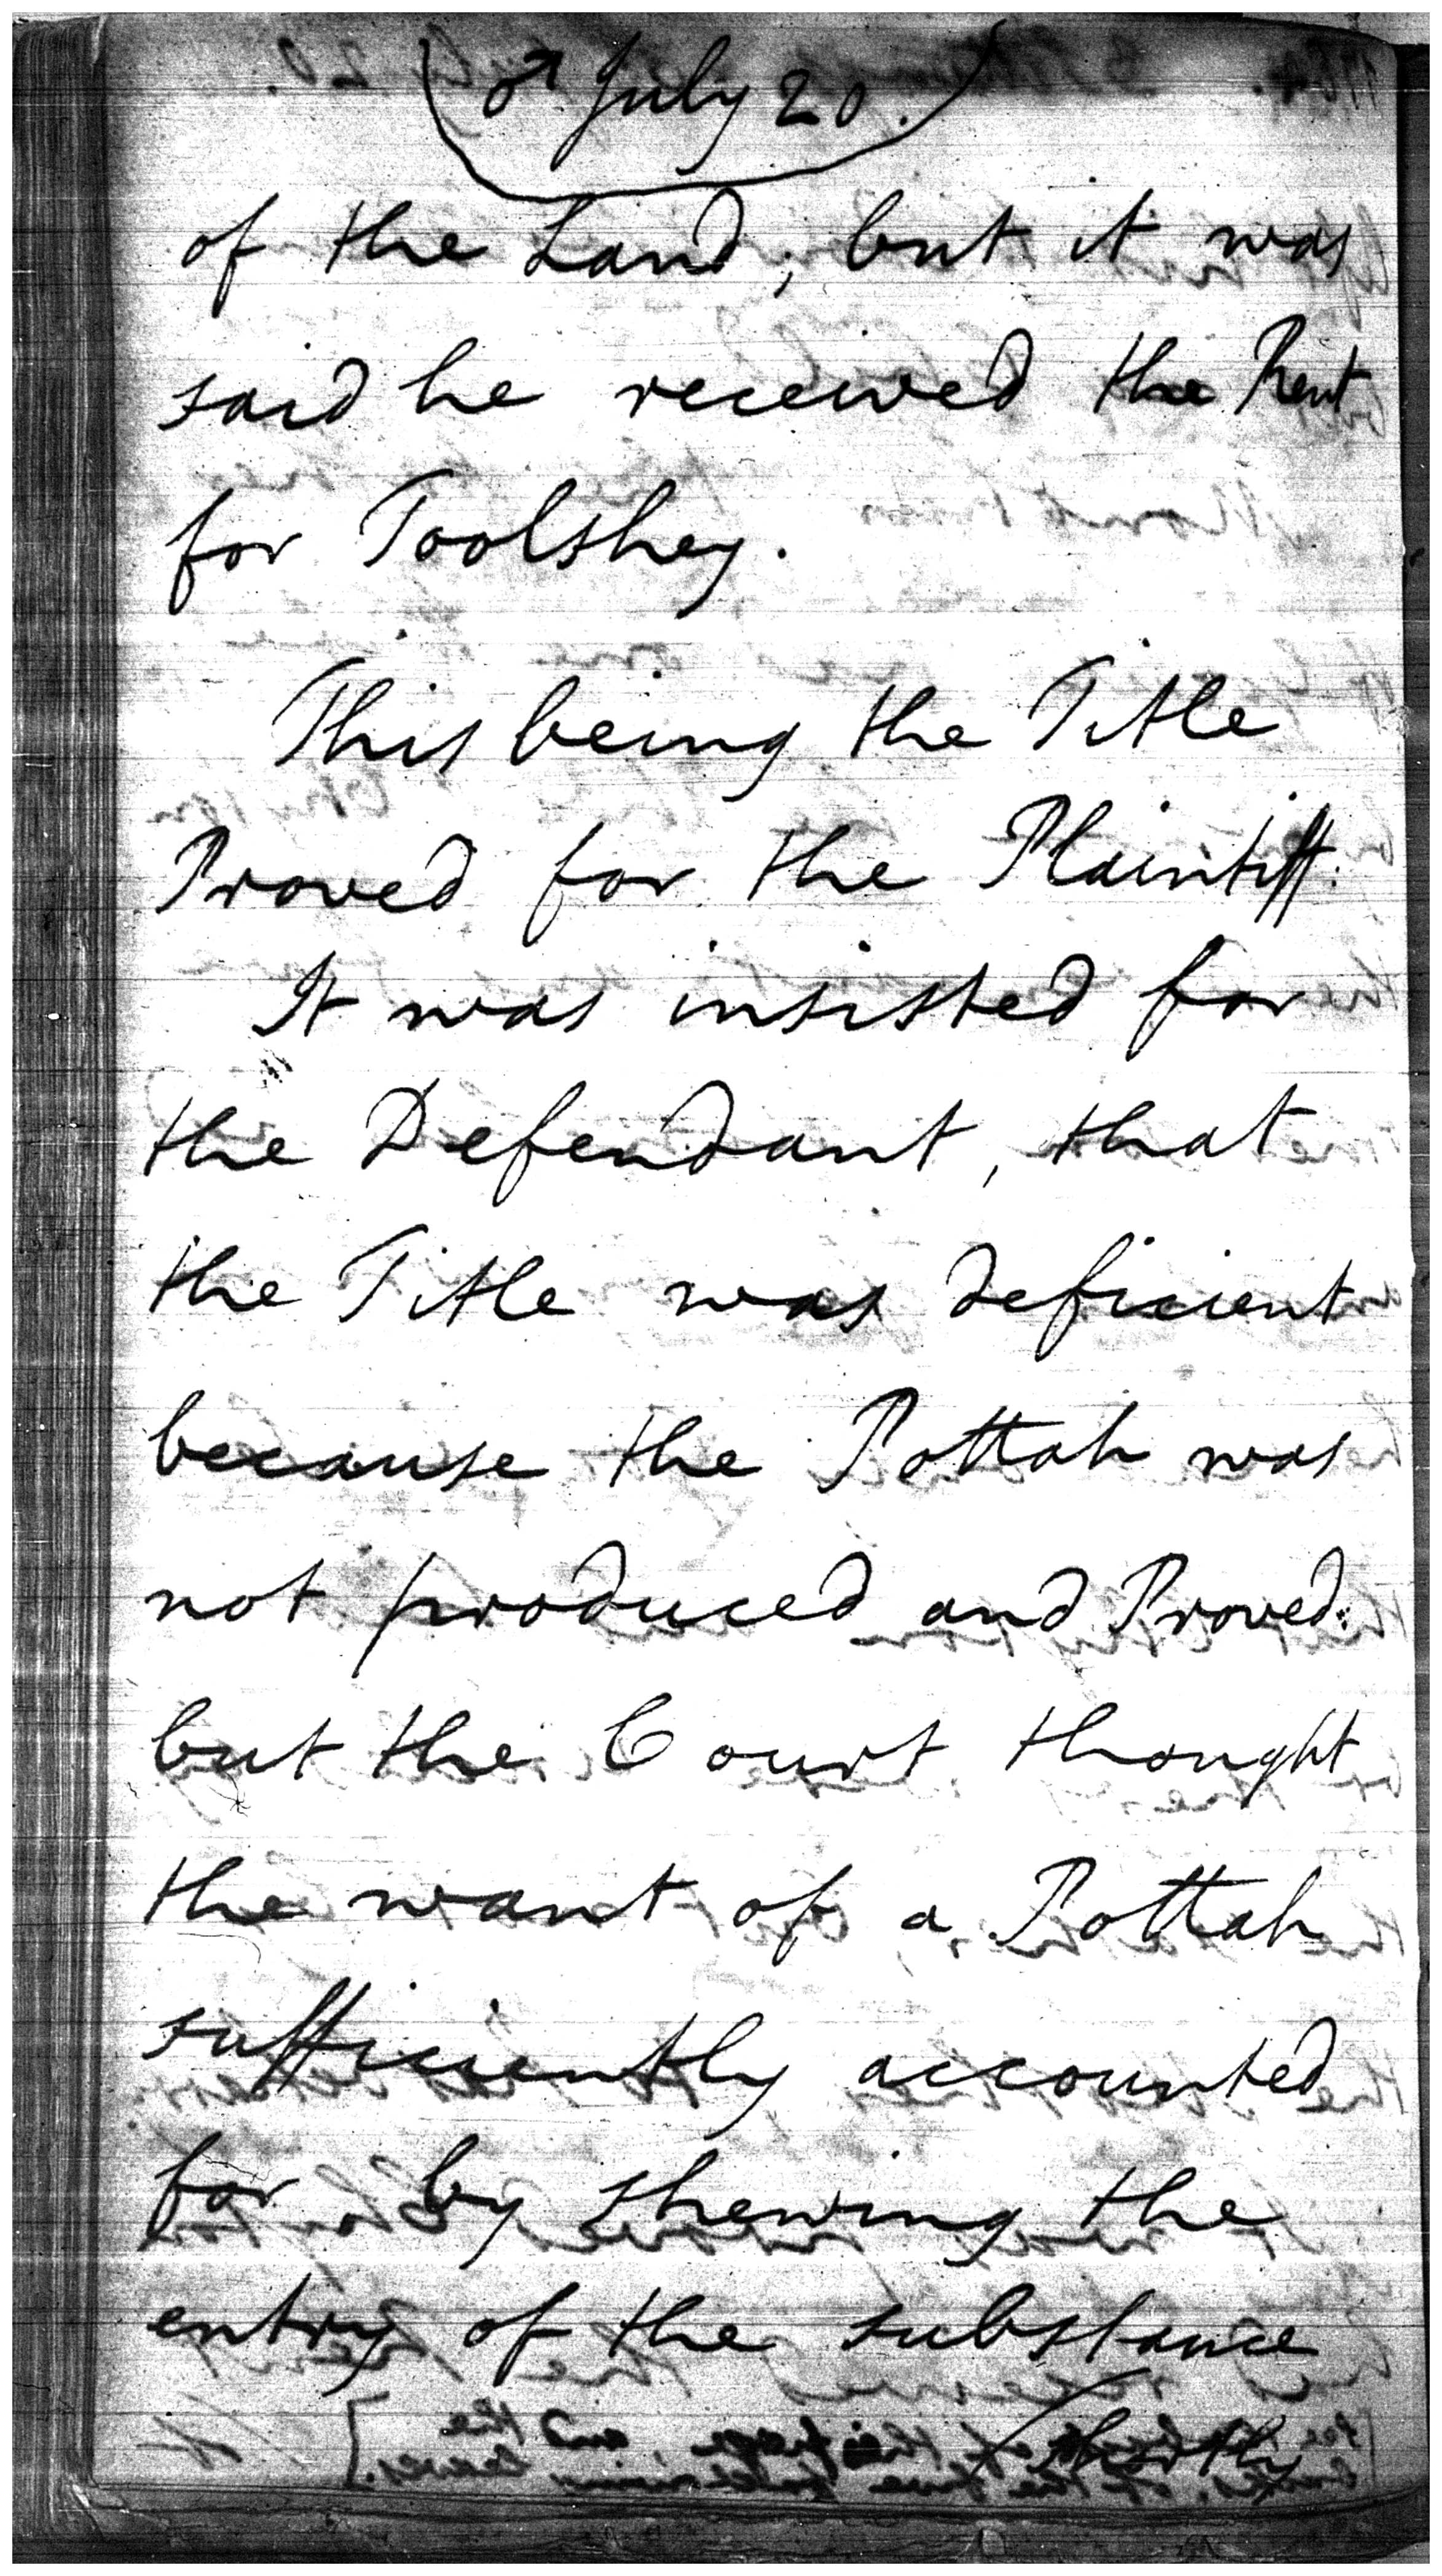 July 20.
of the Land; but it was
said he received the Rent
for Toolshey.
This being the Title
Proved for the Plaintiff.
It was insisted for
the Defendant, that
the Title was deficient
because the Pottah was
not produced and Proved:
but the Court thought
the want of a Pottah
sufficiently accounted
for by shewing the
entry of the substance